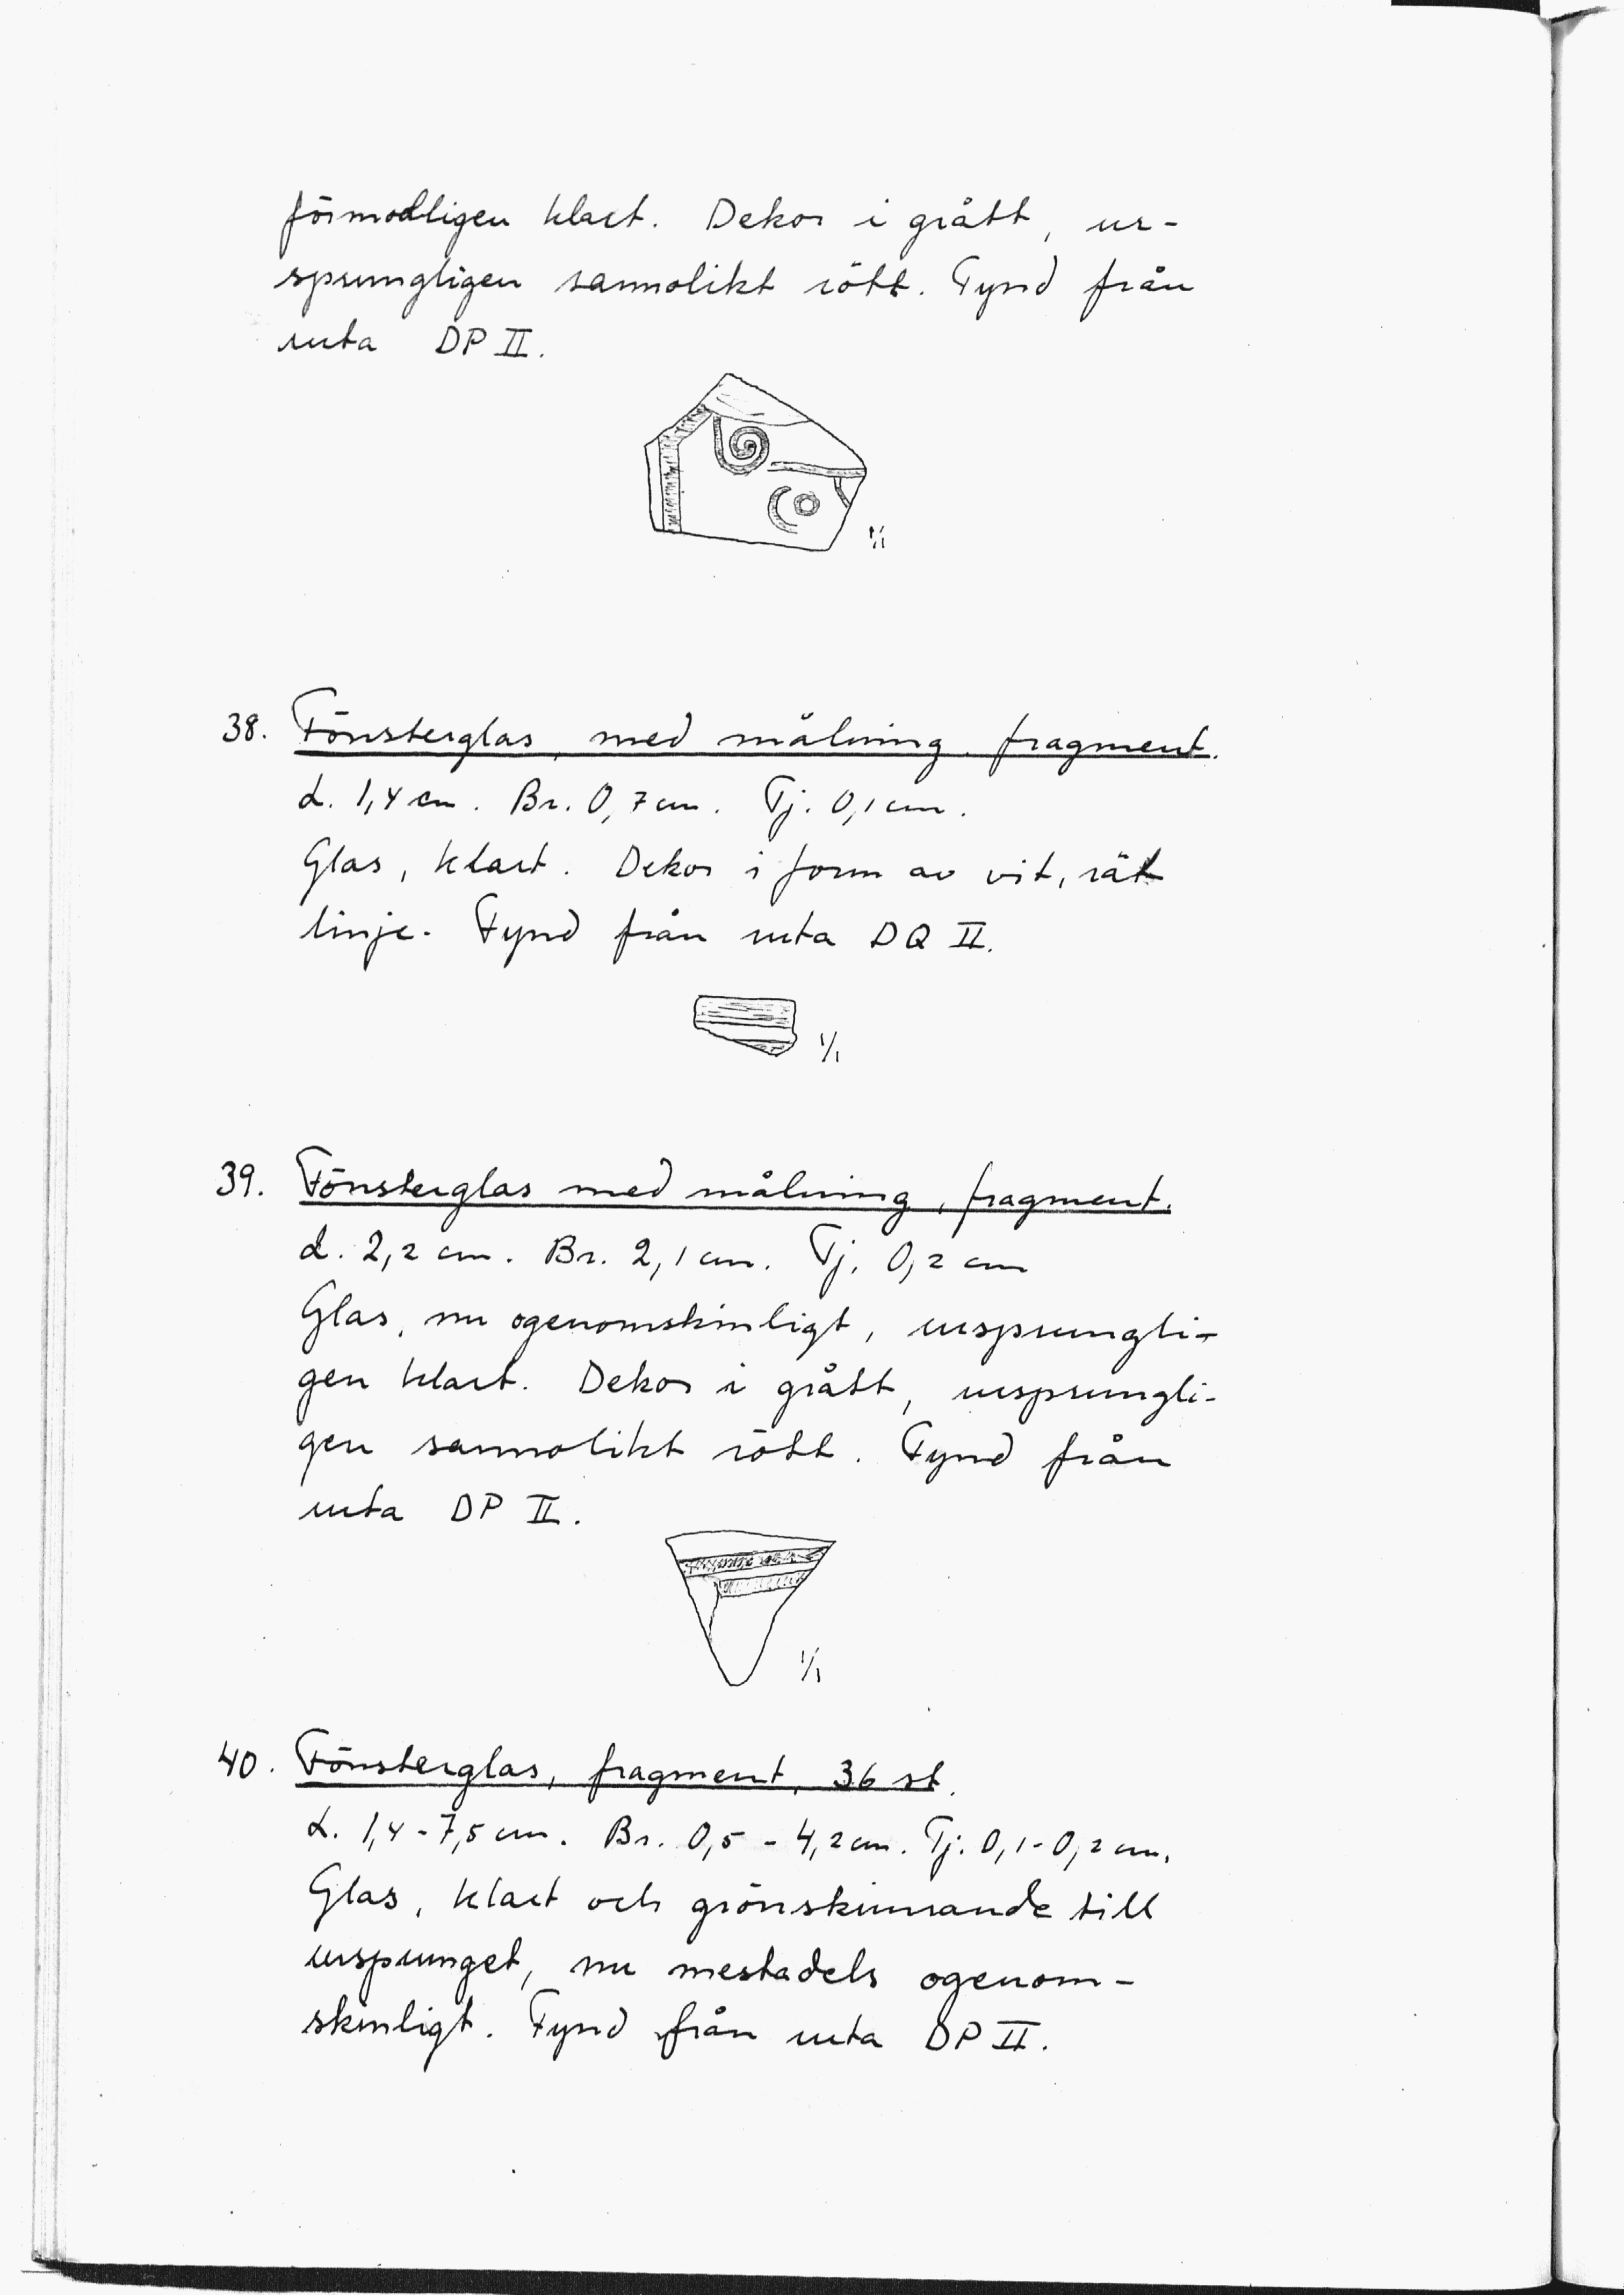 förmodligen klart. Dekor i grått, ur-
sprungligen sannolikt rött. Fynd från
ruta DP II.
1/1
38. Fönsterglas, med målning, fragment.
L. 1,4 cm. Br. 0,7 cm. Tj. 0,1 cm.
Glas, klart. Dekor i form av vit, rät
linje. Fynd från ruta DQ II.
1/1
39. Fönsterglas med målning, fragment.
L. 2,2 cm. Br. 2,1 cm. Tj. 0,2 cm
Glas, nu ogenomskinligt, ursprungli-
gen klart. Dekor i grått, ursprungli-
gen sannolikt rött. Fynd från
ruta DP II.
1/1
40. Fönsterglas, fragment, 36 st.
L. 1,4-7,5 cm. Br. 0,5 - 4,2 cm. Tj. 0,1-0,2 cm.
Glas, klart och grönskimrande till
ursprunget, nu mestadels ogenom-
skinligt. Fynd från ruta DP II.